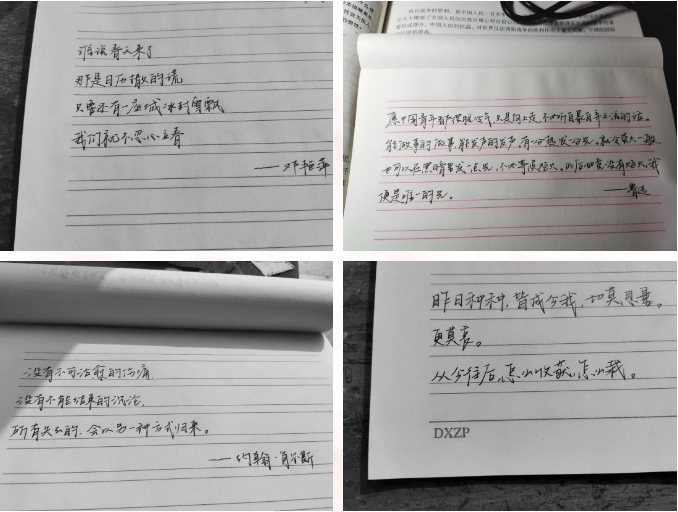 谁说春天来了
那是日历撒的谎
只要还有一座城冰封雪飘
我们都不忍心立春
——邓艳萍
愿中国青年都摆脱冷气,只是向上走,不必听自暴自弃者流的话。
能做事的做事,能发声的发声。有一分热,发一分光。就令萤火一般,
也可以在黑暗里发一点光,不必等候炬火。此后如竟没有炬火,我
便是唯一的光。
——鲁迅
没有不可治愈的伤痛,
没有不能结束的沉沦,
所有失去的,会以另一种方式归来。
——约翰·肖尔斯
昨日种种,皆成今我,切莫思量,
更莫哀。
从今往后,怎么收获,怎么栽。
DXZP